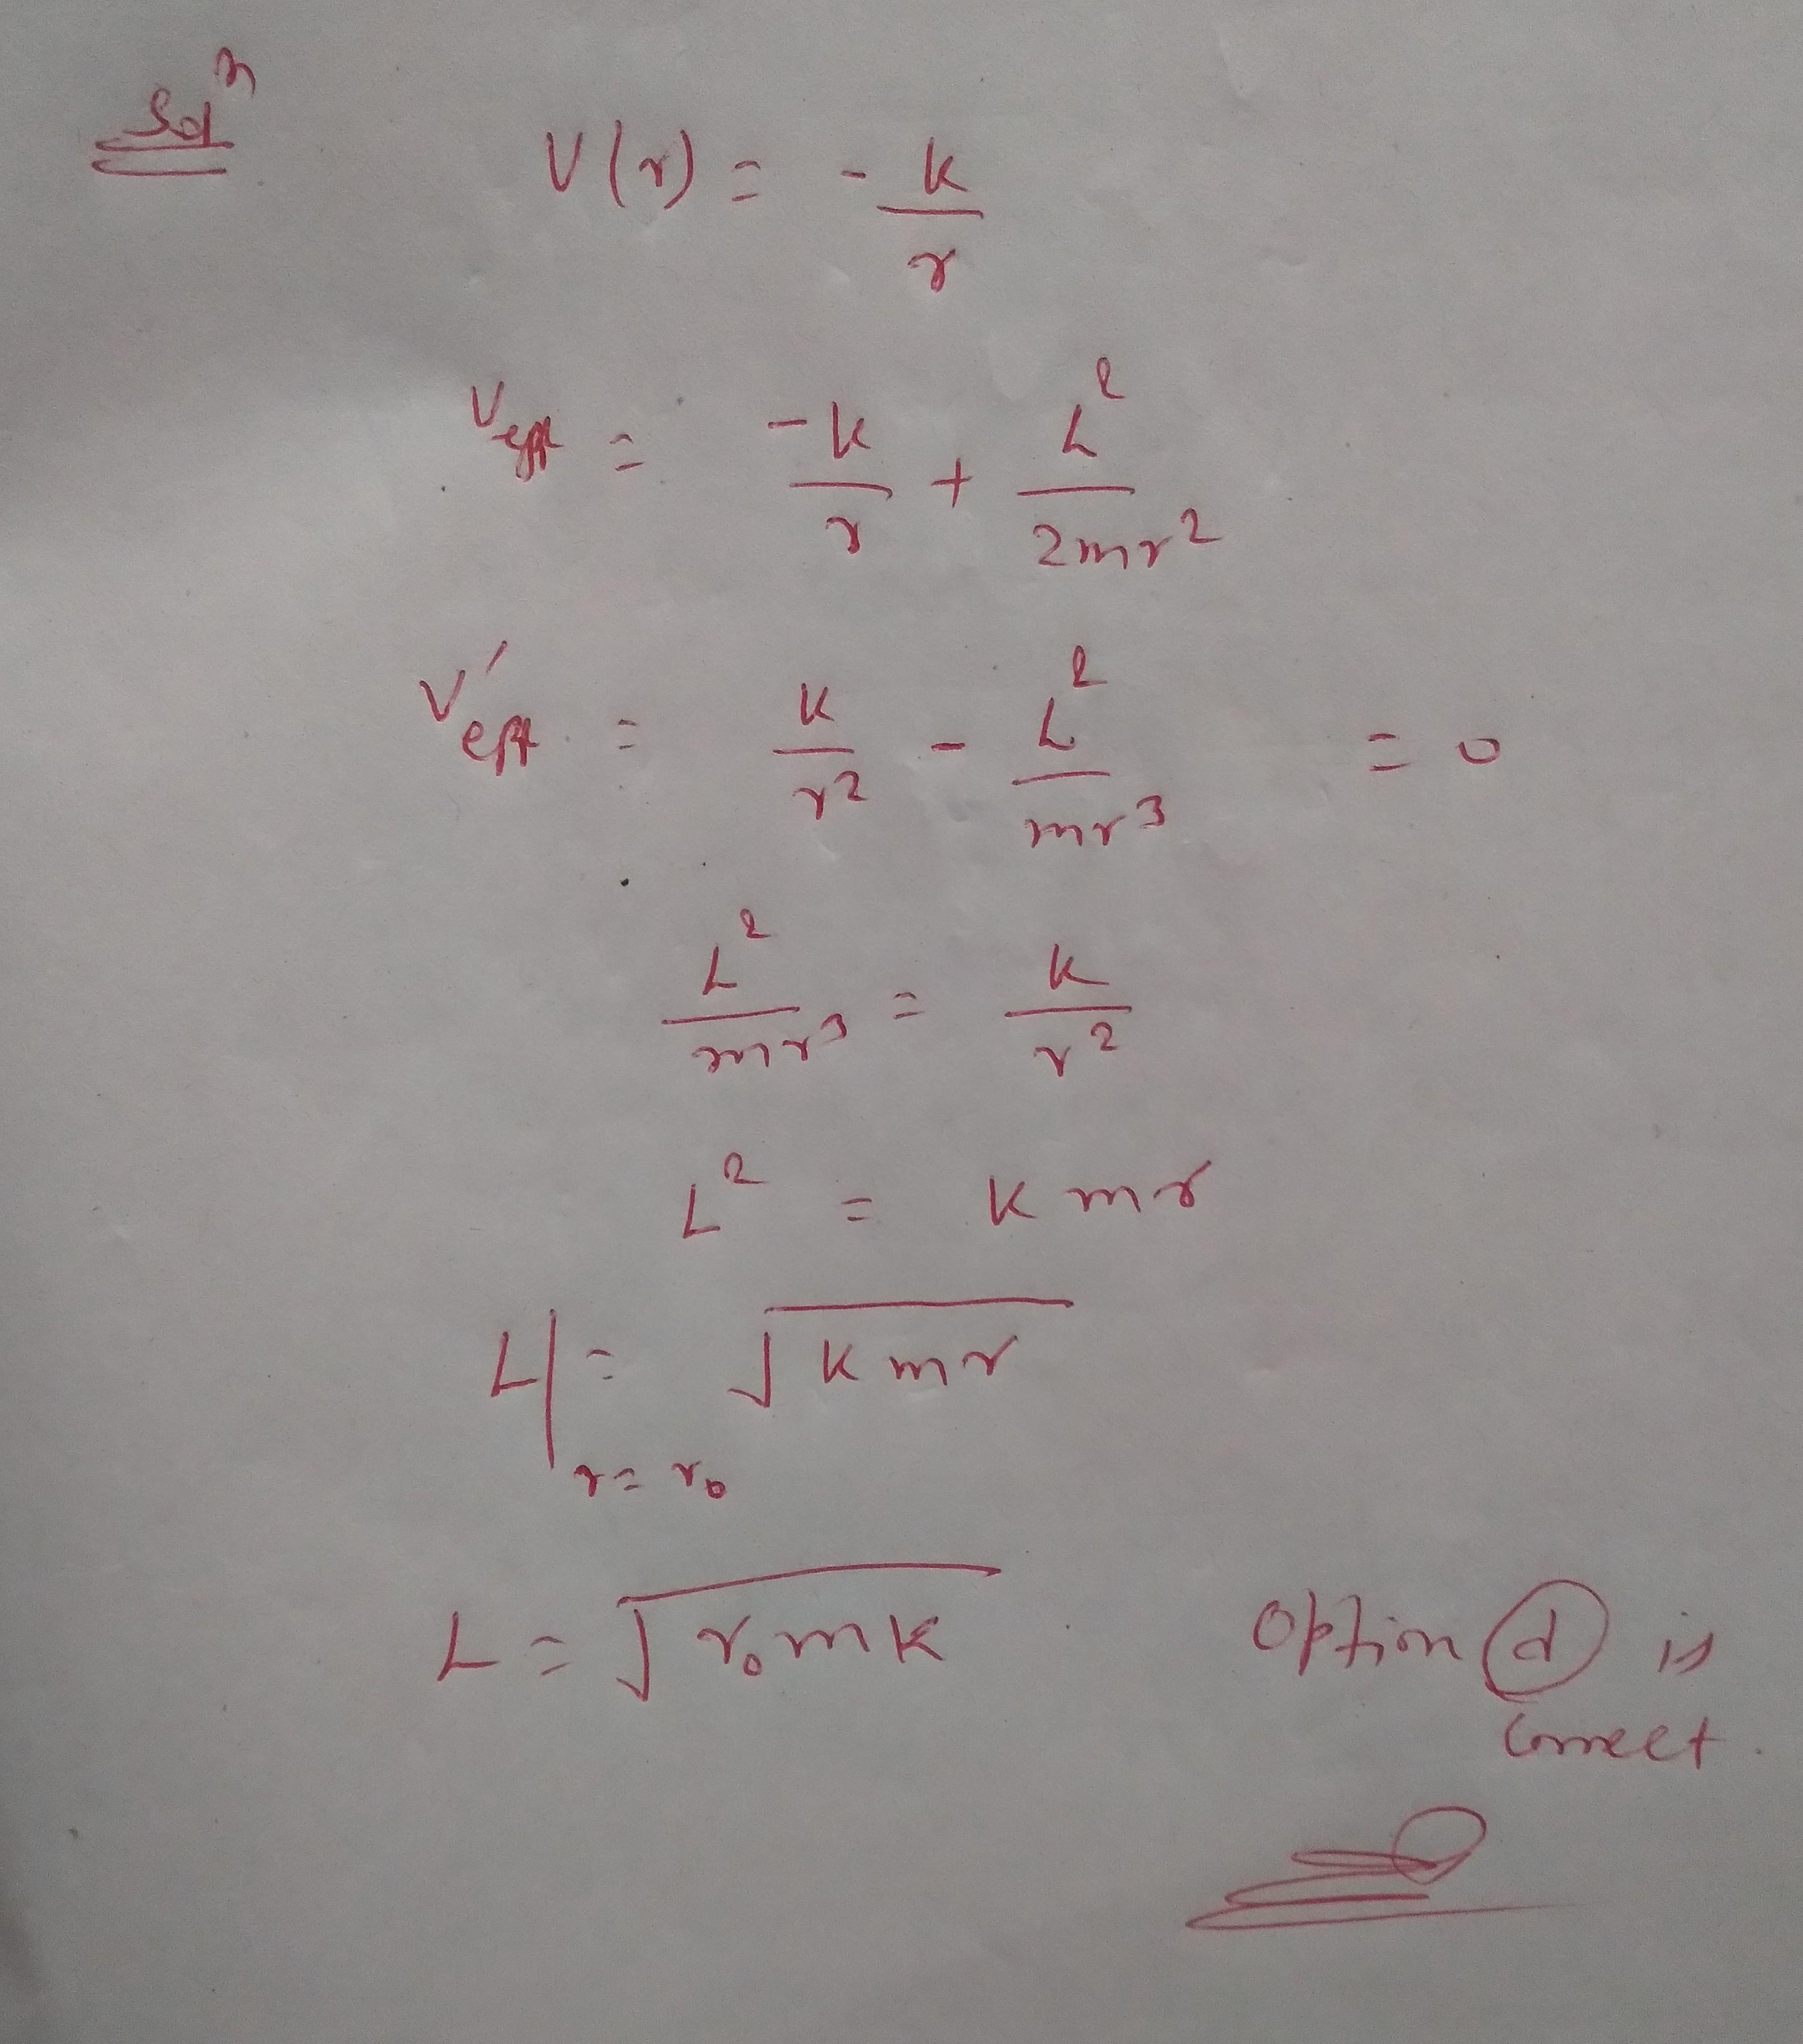 Solⁿ
V(r) = - k/r
V_eff = -k/r + L²/2mr²
V'_eff = k/r² - L²/mr³ = 0
L²/mr³ = k/r²
L² = kmr
L|_{r=r₀} = √(kmr)
L = √(r₀mk) Option (d) is
Correct.